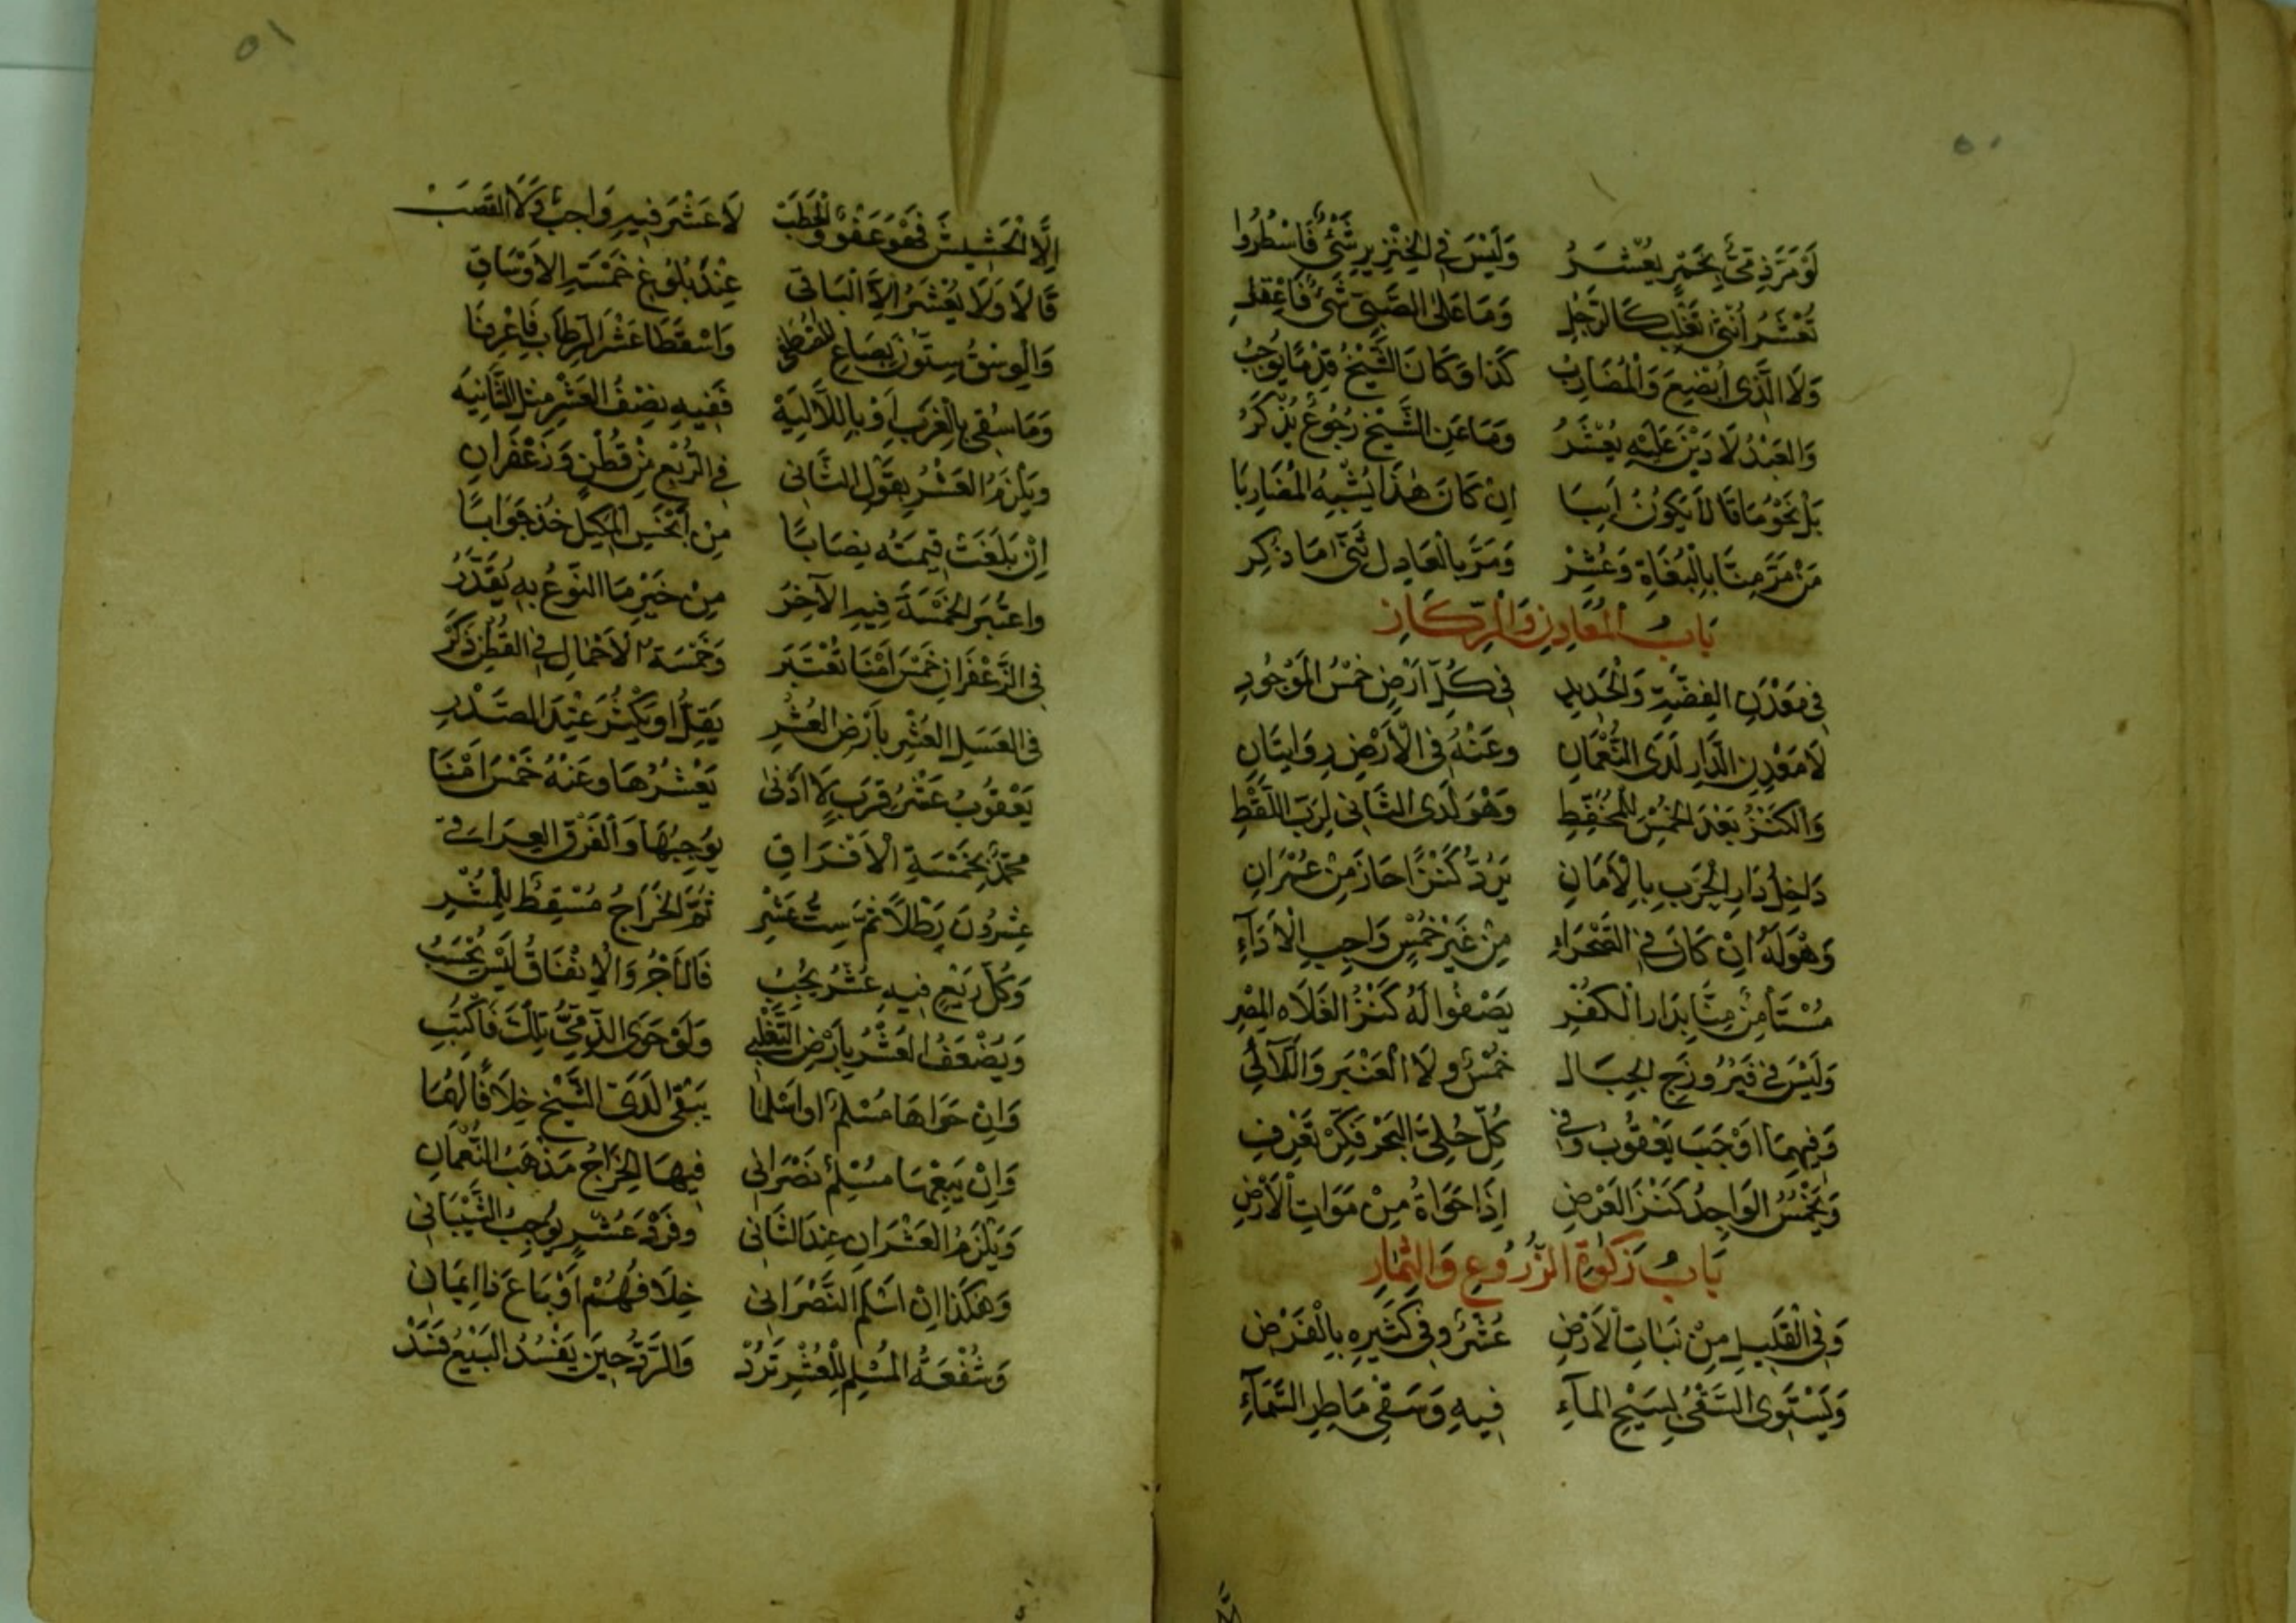 ٥٠
لَوْ مَرَّ ذِمِّيٌّ بِخَمْرٍ يُعْشَرُ وَلَيْسَ فِي الْخِنْزِيرِ شَيْءٌ فَاسْطُرُوا
تُعْشَرُ أُنْثَى تَغْلِبَ كَالرَّجُلِ وَمَا عَلَى الصَّبِيِّ شَيْءٌ فَاعْقِلِ
وَلَا الَّذِي أُبْضِعَ وَالْمُضَارِبُ كَذَا وَكَانَ الشَّيْخُ قِدْمًا يُوجِبُ
وَالْعَبْدُ لَا دَيْنَ عَلَيْهِ يُعْشَرُ وَمَا عَنِ الشَّيْخِ رُجُوعٌ يُذْكَرُ
بَلْ نَحْوُ مَا قَالَا يَكُونُ آيِبَا اِنْ كَانَ هٰذَا يُشْبِهُ الْمُضَارِبَا
مَنْ مَرَّ مِنَّا بِالْبُغَاةِ وَعُشِرْ وَمَرَّ بِالْعَادِلِ ثَنَّى مَا ذُكِرْ
بَابُ الْمَعَادِنِ وَالرِّكَازِ
فِي مَعْدَنِ الْفِضَّةِ وَالْحَدِيدِ فِي كُلِّ اَرْضٍ خُمْسُ الْمَوْجُودِ
لَا مَعْدِنِ الدَّارِ لَدَى النُّعْمَانِ وَعَنْهُ فِي الْأَرْضِ رِوَايَتَانِ
وَالْكَنْزُ بَعْدَ الْخُمْسِ لِلْمُخْتَطِّ وَهْوَ لَدَى الثَّانِي لِرَبِّ اللَّقْطِ
دَاخِلُ دَارِ الْحَرْبِ بِالْأَمَانِ يَرُدُّ كَنْزًا حَازَ مِنْ عُمْرَانِ
وَهْوَ لَهُ اِنْ كَانَ فِي الصَّحْرَاءِ مِنْ غَيْرِ خُمْسٍ وَاجِبِ الْأَدَاءِ
مُسْتَأْمِنٌ مِنَّا بِدَارِ الْكُفْرِ يَصْفُوا لَهُ كَنْزُ الْفَلَاهِ الْمِصْرِ
وَلَيْسَ فِي فَيْرُوزَجِ الْجِبَالِ خُمْسٌ وَلَا الْعَنْبَرِ وَاللَّآلِي
وَفِيهِمَا اَوْجَبَ يَعْقُوبُ وَفِي كُلِّ حُلِيِّ الْبَحْرِ فَكِّرْ تَعْرِفِ
وَيَخْمُسُ الْوَاجِدُ كَنْزَ الْعَرْضِ اِذَا حَوَاهُ مِنْ مَوَاتِ الْأَرْضِ
بَابُ زَكَوةِ الزُّرُوعِ وَالثِّمَارِ
وَفِي الْقَلِيلِ مِنْ نَبَاتِ الْأَرْضِ عُشْرٌ وَفِي كَثِيرِهِ بِالْفَرْضِ
وَيَسْتَوِي السَّقْيُ بِسَيْحِ الْمَاءِ فِيهِ وَسَقْيِ مَاطِرِ السَّمَاءِ
٥١
اِلَّا الْحَشِيشَ فَهْوَ عَفْوٌ وَالْحَطَبْ لَا عُشْرَ فِيهِ وَاجِبٌ وَلَا الْقَصَبْ
قَالَا وَلَا يُعْشَرُ اِلَّا الْبَاقِي عِنْدَ بُلُوغِ خَمْسَةِ الْأَوْسَاقِ
وَالْوَسْقُ سِتُّونَ بِصَاعِ الْمُصْطَفَى وَاَسْقَطَا عُشْرَ الرِّطَابِ فَاعْرِفَا
وَمَا سُقِي بِالْغَرْبِ اَوْ بِالدَّالِيَهْ فَفِيهِ نِصْفُ الْعُشْرِ مِثْلَ الثَّانِيَهْ
وَيَلْزَمُ الْعُشْرُ بِقَوْلِ الثَّانِي فِي الرَّيْعِ مِنْ قُطْنٍ وَزَعْفَرَانِ
اِنْ بَلَغَتْ قِيمَتُهُ نِصَابًا مِنْ اَبْخَسِ الْمَكِيلِ خُذْ جَوَابًا
وَاعْتَبَرَ الْخَمْسَةَ فِيهِ الْآخِرُ مِنْ خَيْرِ مَا النَّوْعُ بِهِ يُقَدَّرُ
فِي الزَّعْفَرَانِ خَمْسَ اَمْنَا تُعْتَبَرْ وَخَمْسَةُ الْأَحْمَالِ فِي الْقُطْنِ ذَكَرْ
فِي الْعَسَلِ الْعُشْرُ بِأَرْضِ الْعُشْرِ يَقِلُّ اَوْ يَكْثُرُ عِنْدَ الصَّدْرِ
يَعْقُوبُ عَشْرُ قِرَبٍ لَا اَدْنَى يَعْشُرُهَا وَعَنْهُ خَمْسُ اَمْنَا
مُحَمَّدٌ بِخَمْسَةِ الْأَفْرَاقِ يُوجِبُهَا وَالْفَرَقُ الْعِرَاقِي
عِشْرُونَ رِطْلًا ثُمَّ سِتُّ عَشْرِ ثُمَّ الْخَرَاجُ مُسْقِطٌ لِلْعُشْرِ
وَكُلُّ رَيْعٍ فِيهِ عُشْرٌ يَجِبُ فَالْأَجْرُ وَالْإِنْفَاقُ لَيْسَ يُحْسَبُ
وَيَضْعَفُ الْعُشْرُ بِأَرْضِ التَّغْلِبِي وَلَوْ حَوَى الذِّمِّيُّ تِلْكَ فَاكْتُبِ
وَاِنْ حَوَاهَا مُسْلِمٌ اَوْ اَسْلَمَا يَبْقَى لَدَى الشَّيْخِ خِلَافًا لَهُمَا
وَاِنْ يَبِعْهَا مُسْلِمٌ نَصْرَانِي فِيهَا الْخَرَاجُ مَذْهَبُ النُّعْمَانِ
وَيَلْزَمُ الْعُشْرَانِ عِنْدَ الثَّانِي وَفَرْدَ عُشْرٍ يُوجِبُ الشَّيْبَانِي
وَهَكَذَا اِنْ اَسْلَمَ النَّصْرَانِي خِلَافُهُمْ اَوْ بَاعَ ذَا اِيمَانِ
وَشُفْعَةُ الْمُسْلِمِ لِلْعُشْرِ تَرُدْ وَالرَّدُّ حِينَ يَفْسُدُ الْبَيْعُ